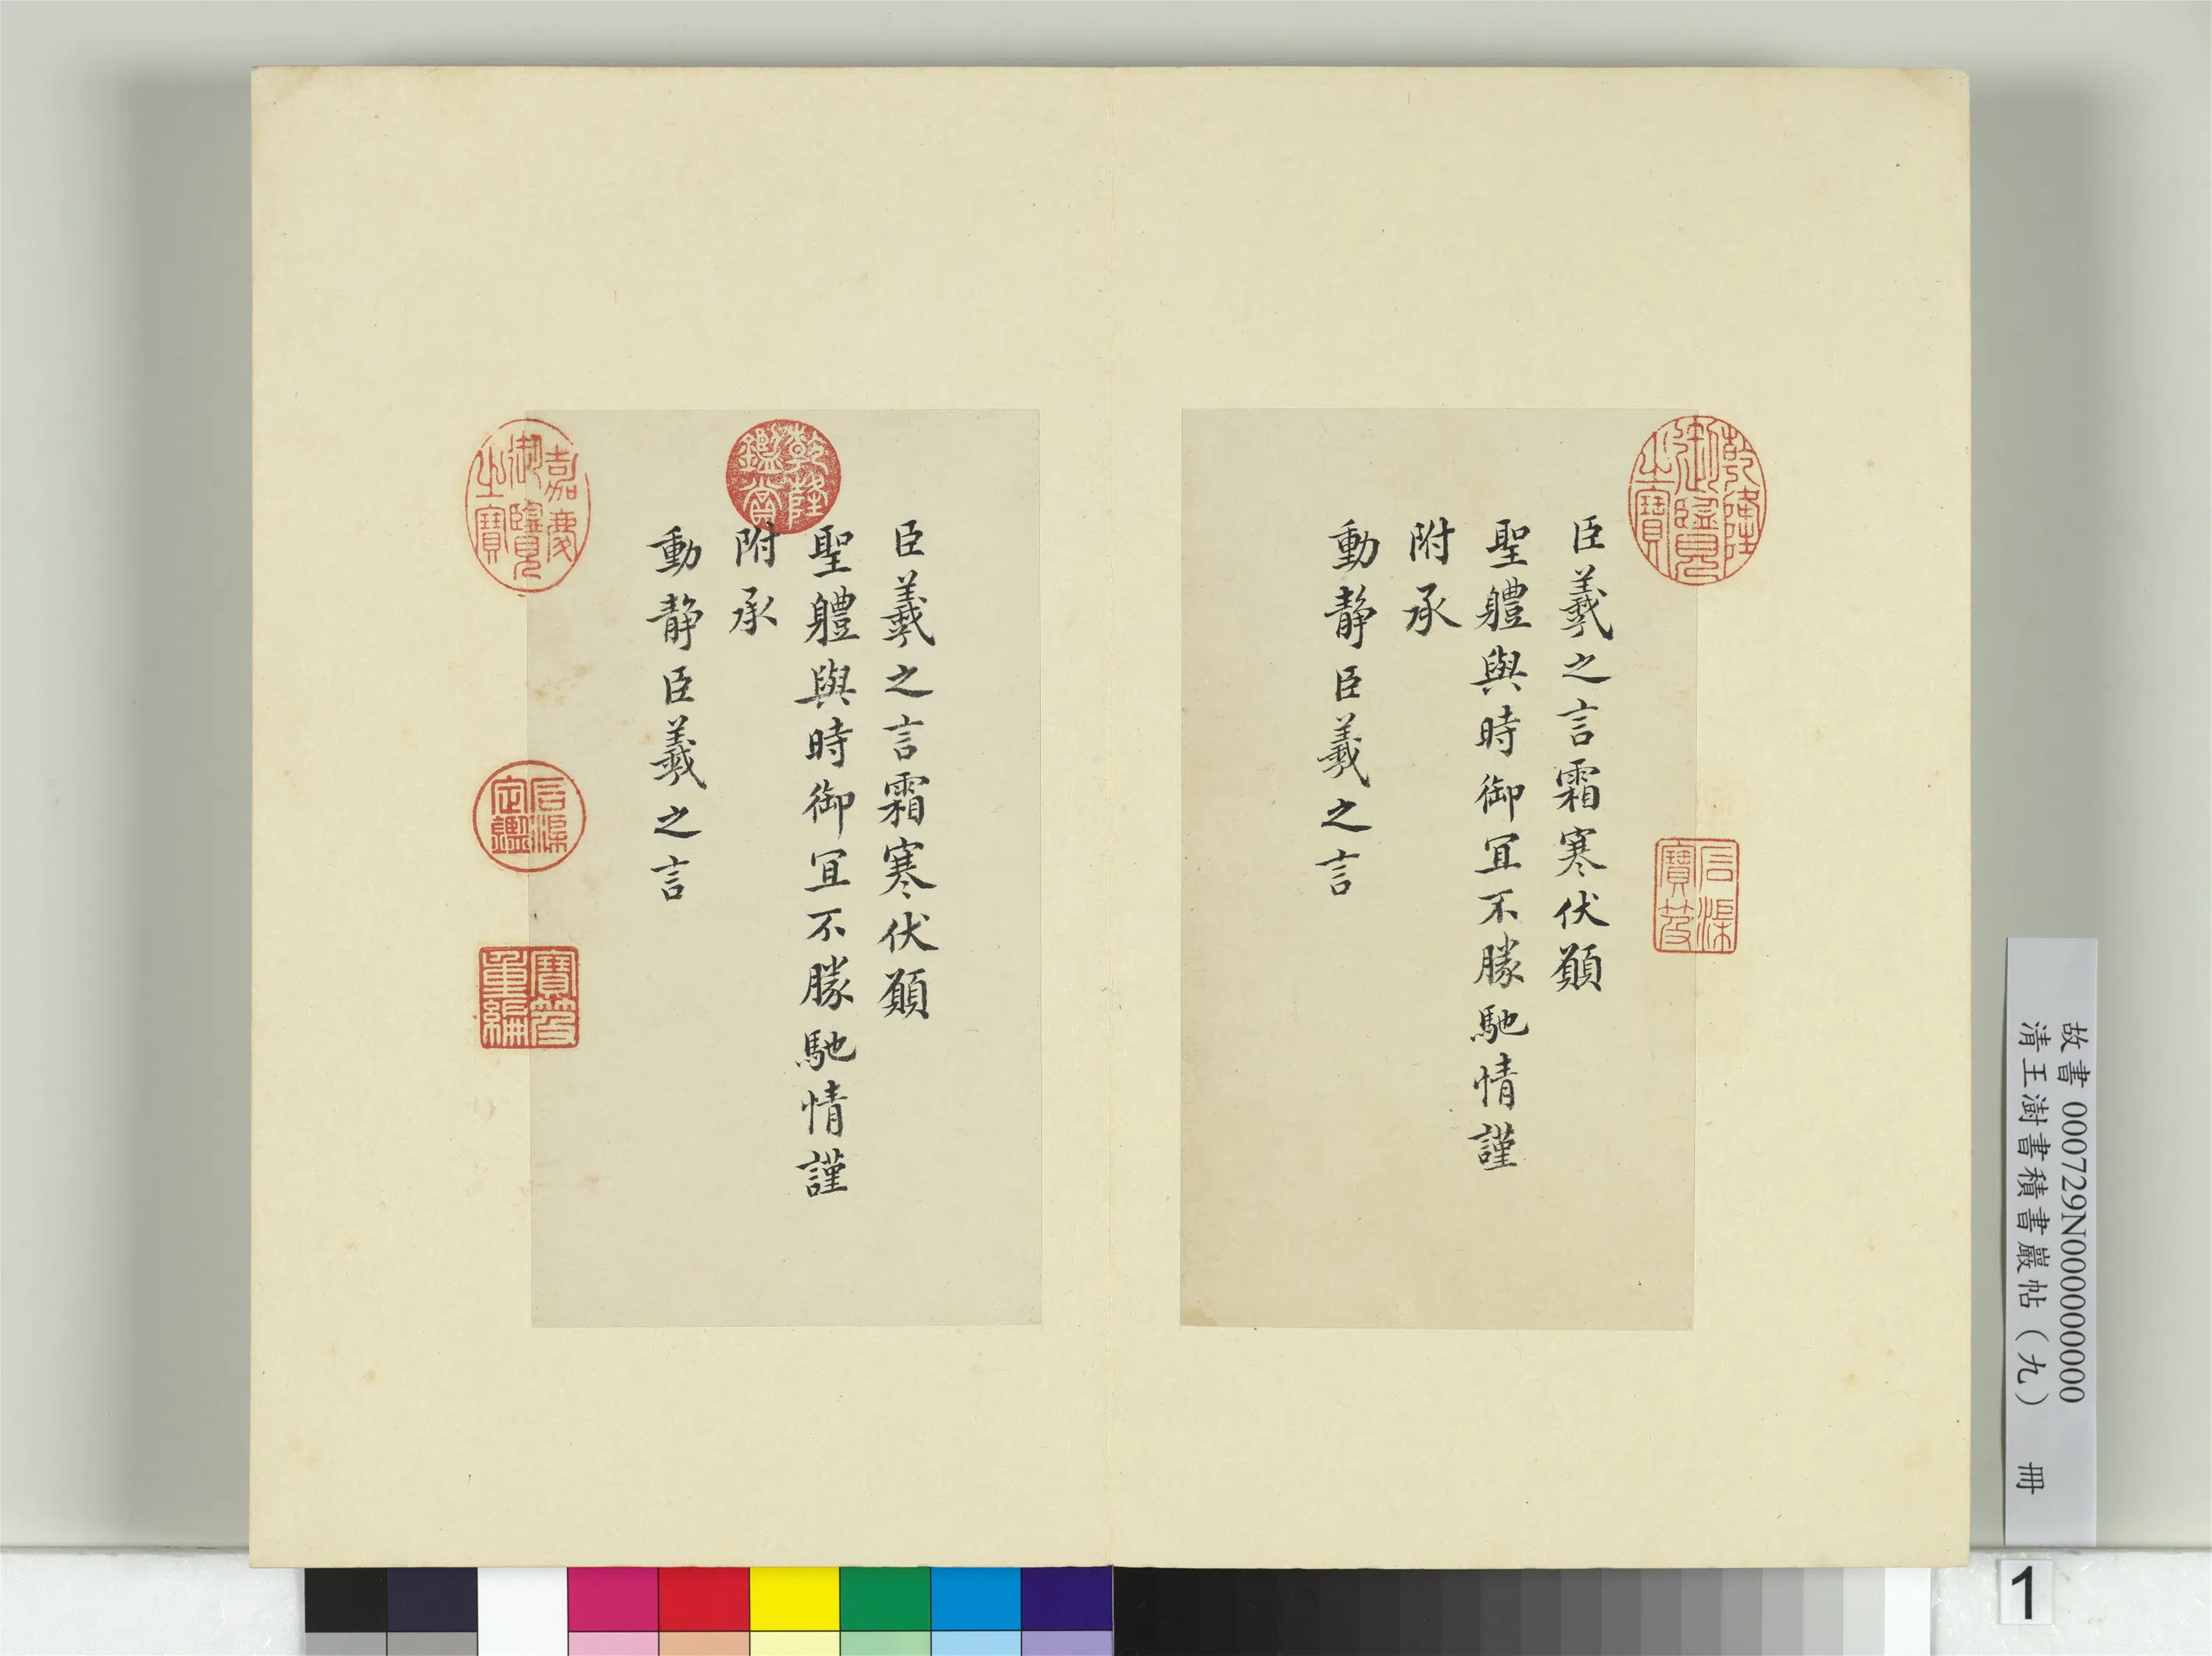 乾隆御覽之寶
石渠寶笈
臣羲之言霜寒伏願
聖軆與時御冝不勝馳情謹
附承
動静臣羲之言
臣羲之言霜寒伏願
聖軆與時御冝不勝馳情謹
附承
動静臣羲之言
乾隆鑑賞
嘉慶御覽之寶
石渠定鑑
寶笈重編
故書 000729N000000000
清王澍書積書巖帖（九） 冊
1